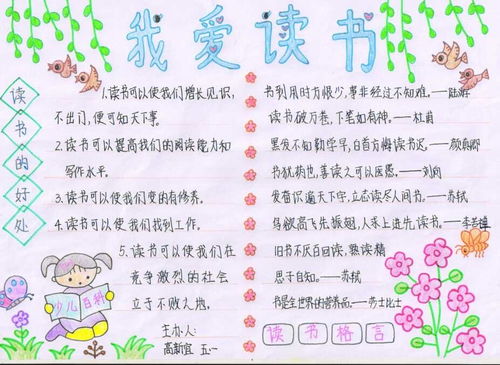 我爱读书
读书的好处
1.读书可以使我们增长见识,
不出门,便可知天下事。
2.读书可以提高我们的阅读能力和
写作水平。
3.读书可以使我们变的有修养。
4.读书可以使我们找到工作。
5.读书可以使我们在
竞争激烈的社会
立于不败之地。
主办人:
高新宜 五一
少儿百科
书到用时方恨少,事非经过不知难。——陆游
读书破万卷,下笔如有神。——杜甫
黑发不知勤学早,白首方悔读书迟。——颜真卿
书犹药也,善读之可以医愚。——刘向
发奋识遍天下字,立志读尽人间书。——苏轼
鸟欲高飞先振翅,人求上进先读书。——李苦禅
旧书不厌百回读,熟读精
思子自知。——苏轼
书是全世界的营养品——莎士比士
读书格言